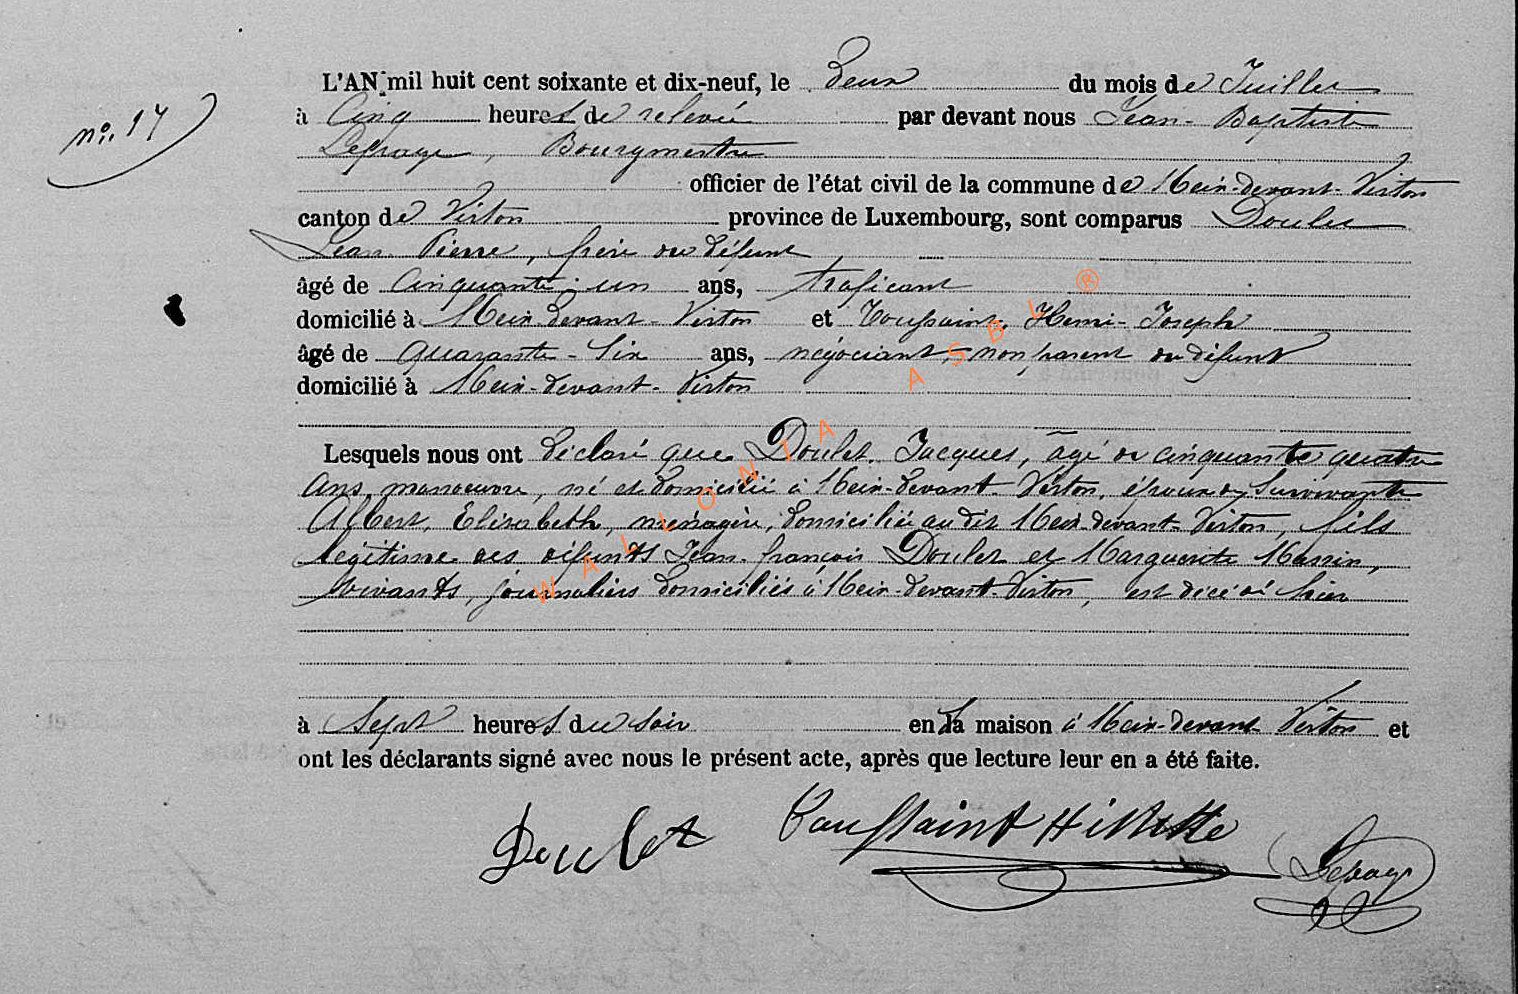 L'AN mil huit cent soixante et dix-neuf, le Deux du mois de Juillet
no. 17
à Cinq heures de relevée par devant nous Jean-Baptiste
Lepage, Bourgmestre
officier de l'état civil de la commune de Meix-devant-Virton
canton de Virton province de Luxembourg, sont comparus Doulet
Jean Pierre, frère du défunt
âgé de Cinquante-un ans, traficant
domicilié à Meix-devant-Virton et Toussaint, Henri-Joseph
âgé de quarante-six ans, négociant, non parent du défunt
domicilié à Meix-devant-Virton
Lesquels nous ont déclaré que Doulet, Jacques, âgé de cinquante quatre
ans, manoeuvre, né et domicilié à Meix-devant-Virton, époux survivante
Albert, Elisabeth, ménagère, domiciliée au dit Meix-devant-Virton, fils
légitime des défunts Jean-françois Doulet et Marguerite Massin,
vivants, journaliers domiciliés à Meix-devant-Virton, est décédé hier
à Sept heures du soir en sa maison à Meix-devant-Virton et
ont les déclarants signé avec nous le présent acte, après que lecture leur en a été faite.
Doulet Toussaint Lepage
WALLONIA ASBL ®